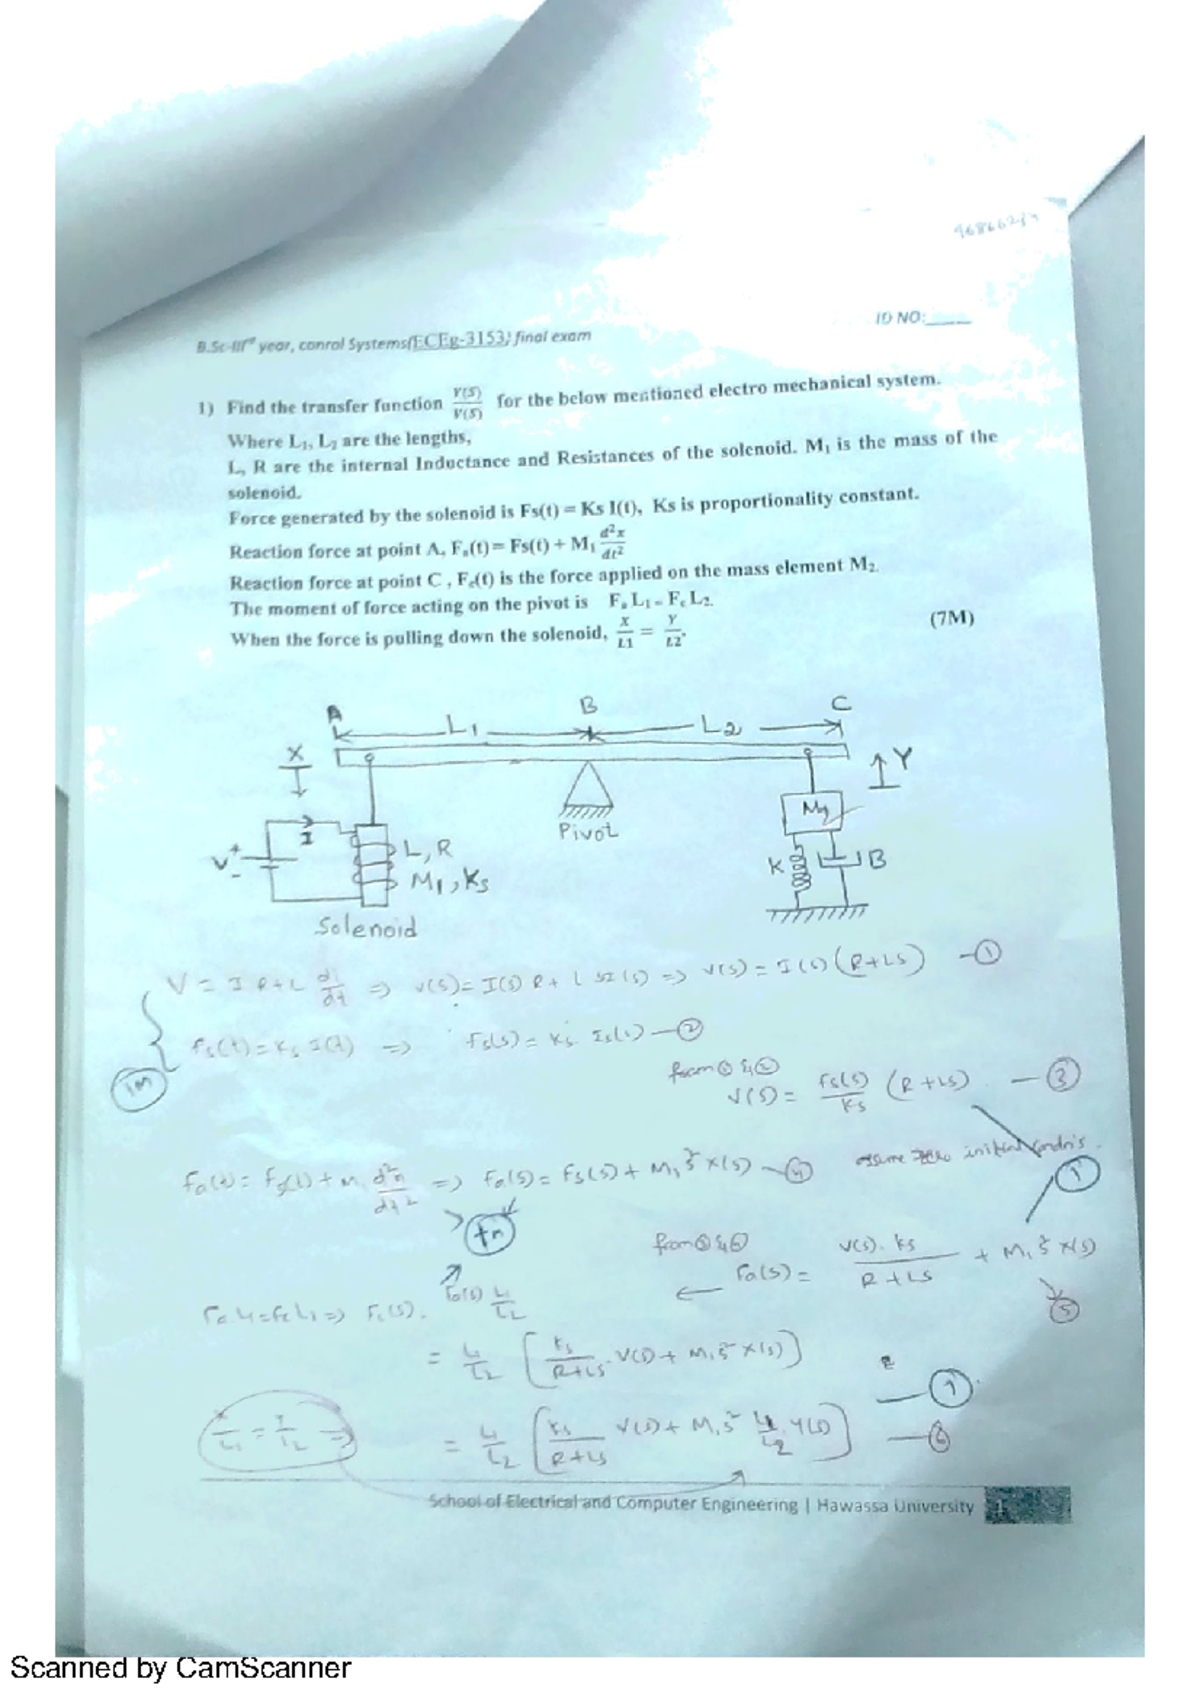 ID NO:____
B.Sc-IIIrd year, conrol Systems(ECEg-3153) final exam
1) Find the transfer function Y(S)/V(S) for the below mentioned electro mechanical system.
Where L₁, L₂ are the lengths,
L, R are the internal Inductance and Resistances of the solenoid. M₁ is the mass of the
solenoid.
Force generated by the solenoid is Fs(t) = Ks I(t), Ks is proportionality constant.
Reaction force at point A, Fₐ(t)= Fs(t) + M₁ d²x/dt²
Reaction force at point C , F_c(t) is the force applied on the mass element M₂.
The moment of force acting on the pivot is Fₐ L₁ = F_c L₂.
When the force is pulling down the solenoid, X/L1 = Y/L2. (7M)
A B C
L₁ L₂
X Y
I
V + -
L, R
M₁, Ks
Solenoid
Pivot
M₂
K B
V = I R + L di/dt ⇒ V(s) = I(s) R + L sI(s) ⇒ V(s) = I(s) (R+LS) —①
Fs(t) = Ks I(t) ⇒ Fs(s) = Ks Is(s) —②
1m
from ① & ②
V(s) = Fs(s)/Ks (R+LS) —③
Fa(t) = Fs(t) + M₁ d²x/dt² ⇒ Fa(s) = Fs(s) + M₁s² X(s) —④
assume zero initial condns.
1m
Fa(s) = V(s).Ks/(R+LS) + M₁s² X(s)
⑤
Fa L₁ = Fc L₂ ⇒ Fc(s) = Fa(s) L₁/L₂
= L₁/L₂ [Ks/(R+LS) . V(s) + M₁s² X(s)]
X/L₁ = Y/L₂ ⇒
= L₁/L₂ [Ks/(R+LS) V(s) + M₁s² L₁/L₂ . Y(s)] —⑥
School of Electrical and Computer Engineering | Hawassa University 1
Scanned by CamScanner